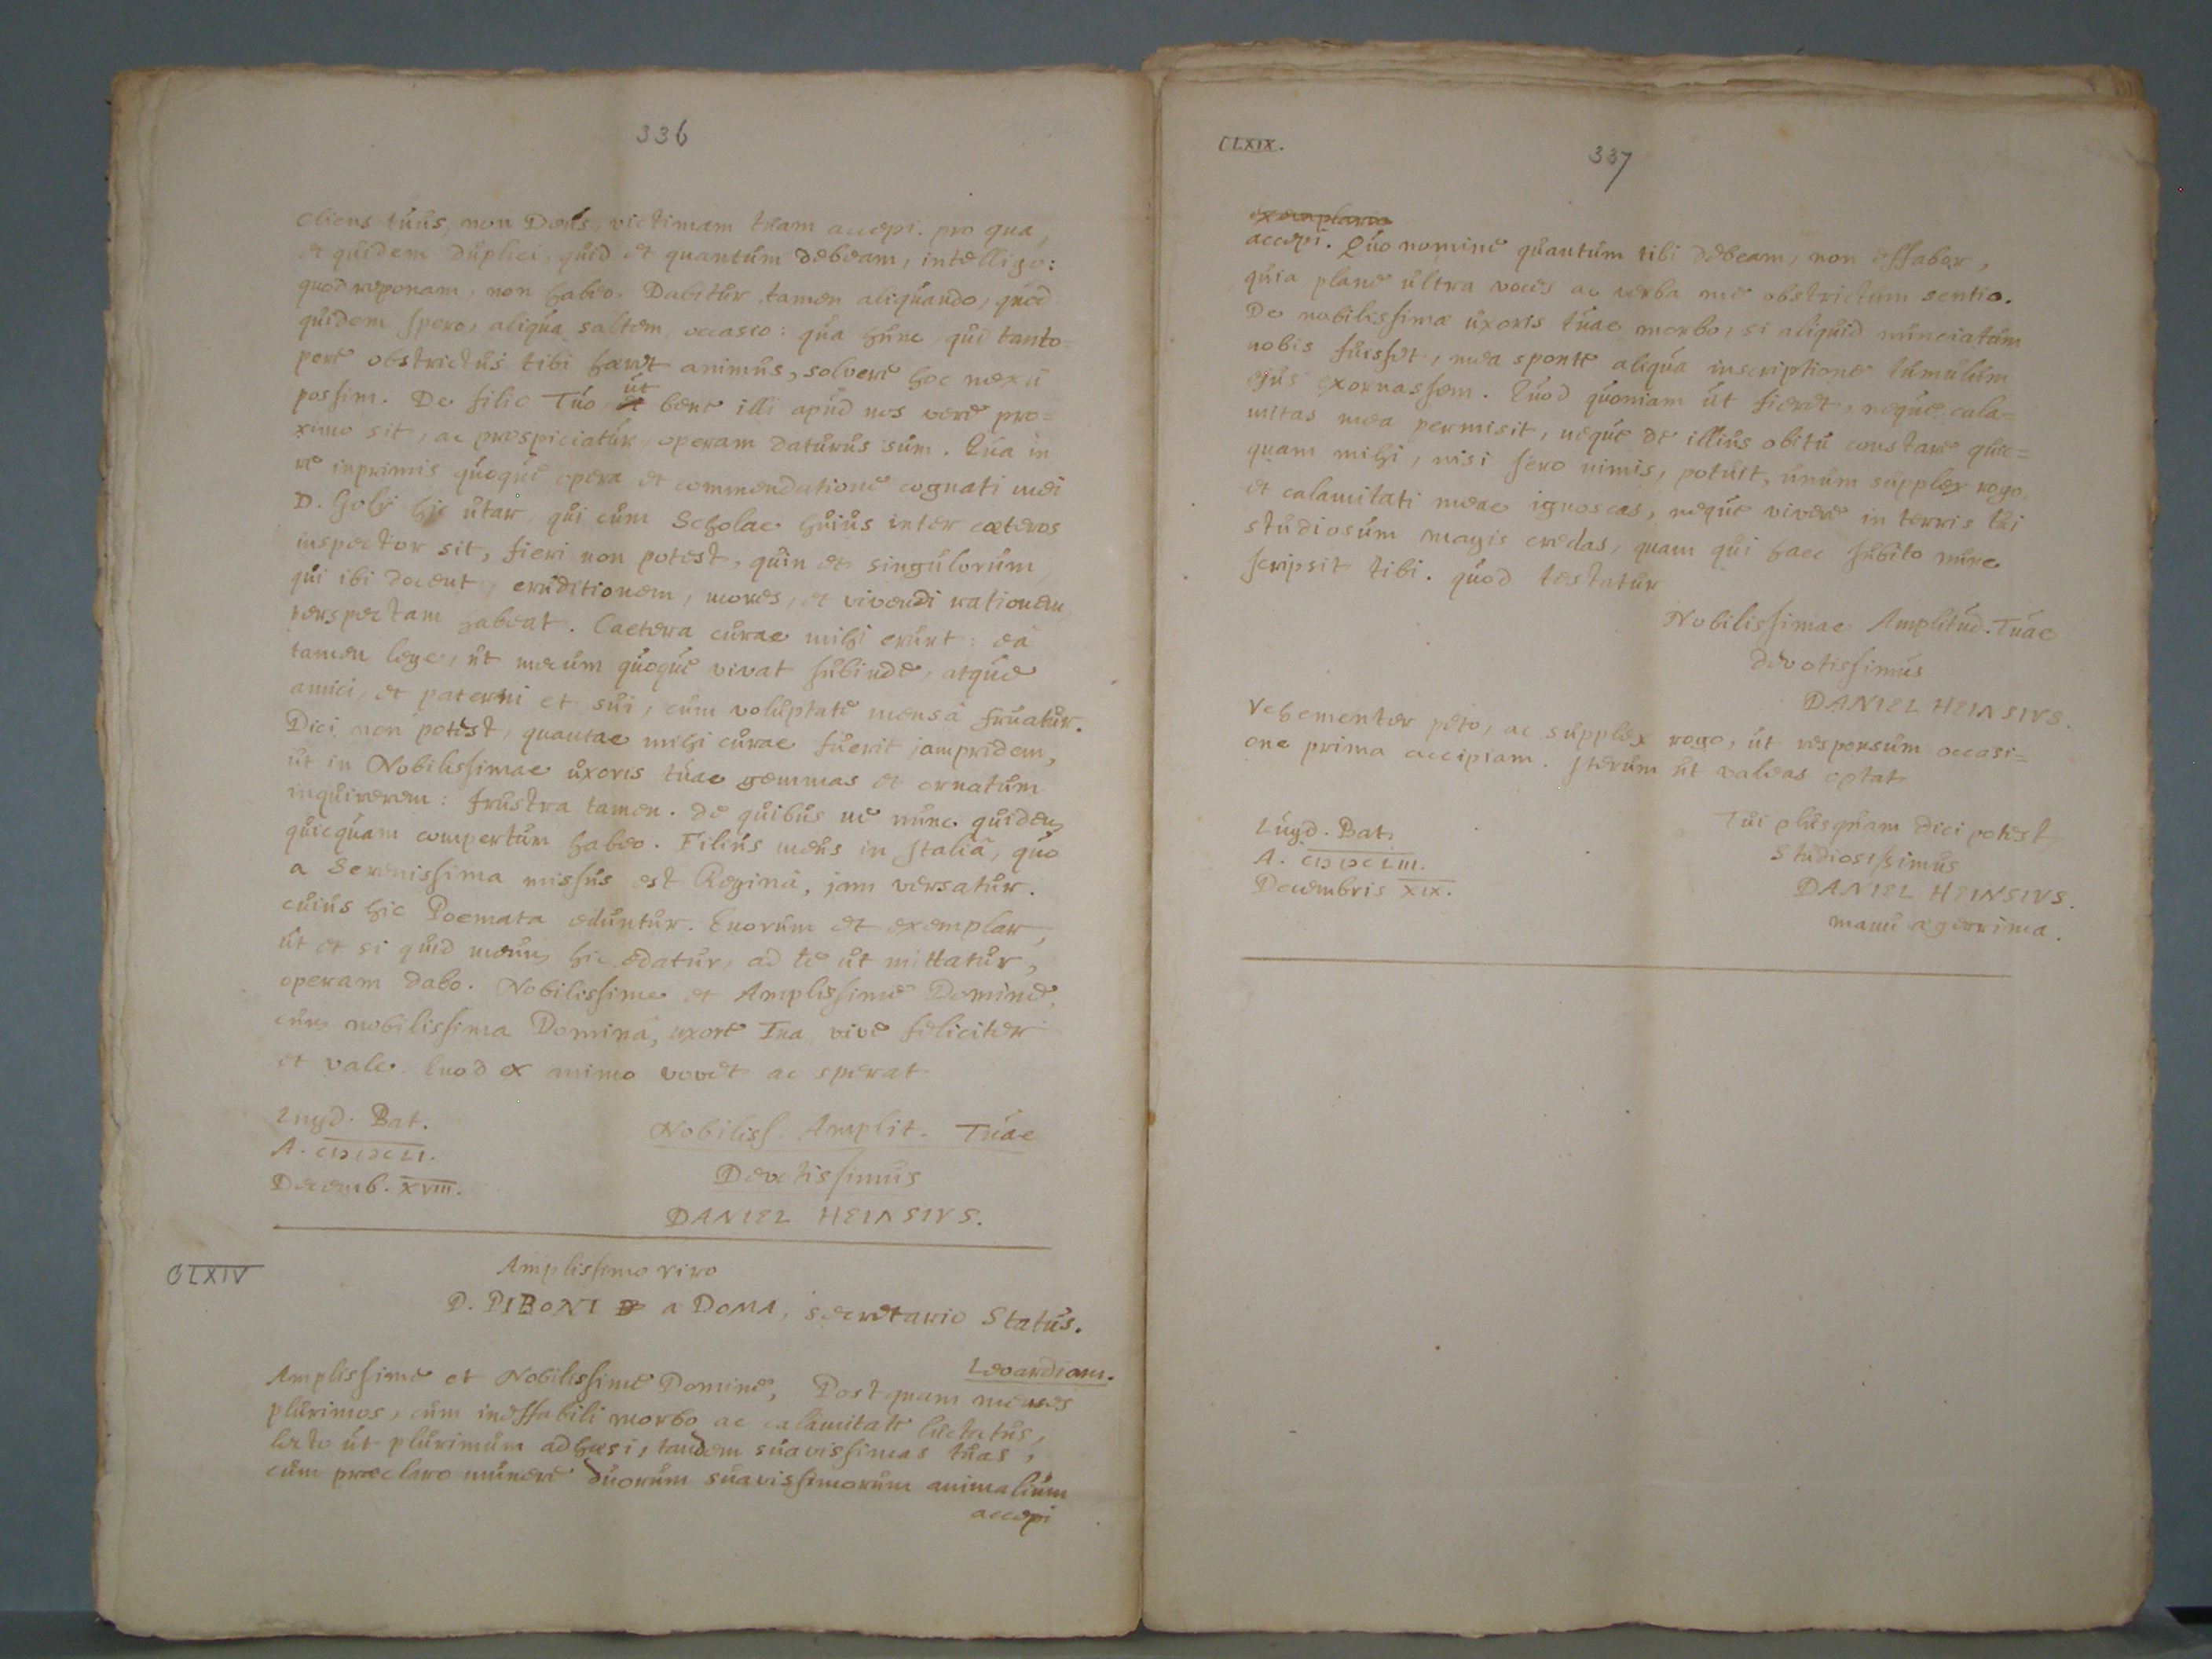 336
cliens tuus, non Deus, victimam tuam accepi. pro qua,
et quidem duplici, quid et quantum debeam, intelligo:
quod reponam, non habeo. Dabitur tamen aliquando, quod
quidem spero, aliqua saltem occasio: qua hunc, qui tanto=
pere obstrictus tibi haeret animus, solvere hoc nexu
possim. De filio Tuo, ut bene illi apud nos vere pro=
ximo sit, ac prospiciatur, operam daturus sum. Qua in
re inprimis quoque opera et commendatione cognati mei
D. Golij hic utar, qui cum Scholae huius inter caeteros
inspector sit, fieri non potest, quin et singulorum,
qui ibi docent, eruditionem, mores, et vivendi rationem,
perspectam habeat. Caetera curae mihi erunt: eâ
tamen lege, ut mecum quoque vivat subinde, atque
amici, et paterni et sui, cum voluptate mensâ fruatur.
Dici non potest, quantae mihi curae fuerit jampridem,
ut in Nobilissimae uxoris tuae gemmas et ornatum
inquirerem: frustra tamen. de quibus ne nunc quidem
quicquam compertum habeo. Filius meus in Italiâ, quo
a Serenissima missus est Reginâ, jam versatur.
cuius hic Poemata eduntur. Quorum et exemplar,
ut et si quid meum hic edatur, ad te ut mittatur,
operam dabo. Nobilissime et Amplissime Domine,
cum nobilissima Dominâ, uxore Tua, vive feliciter
et vale. Quod ex animo vovet ac sperat
Lugd. Bat.
A. CIↃIↃCLI.
Decemb. XVIII.
Nobiliss. Amplit. Tuae
Devotissimus
DANIEL HEINSIVS.
CLXIV
Amplissimo viro
D. PIBONI a DOMA, secretario Status.
Leoardiam.
Amplissime et Nobilissime Domine, Postquam menses
plurimos, cum ineffabili morbo ac calamitate luctatus,
lecto ut plurimum adhaesi, tandem suavissimas tuas,
cum praeclaro munere duorum suavissimorum animalium
accepi
CLXIX.
337
exemplaria
accepi. Quo nomine quantum tibi debeam, non effabor,
quia plane ultra voces ac verba me obstrictum sentio.
De nobilissimae uxoris tuae morbo, si aliquid nunciatum
nobis fuisset, mea sponte aliqua inscriptione tumulum
ejus exornassem. Quod quoniam ut fieret, neque cala=
mitas mea permisit, neque de illius obitu constare quic=
quam mihi, nisi sero nimis, potuit, unum supplex rogo,
et calamitati meae ignoscas, neque vivere in terris tui
studiosum magis credas, quam qui haec subito nunc
scripsit tibi. quod testatur
Nobilissimae Amplitud. Tuae
devotissimus
DANIEL HEINSIVS.
Vehementer peto, ac supplex rogo, ut responsum occasi=
one prima accipiam. Iterum ut valeas optat
Lugd. Bat.
A. CIↃIↃCLIII.
Decembris XIX.
Tui plusquam dici potest
Studiosissimus
DANIEL HEINSIVS.
manu aegerrima.